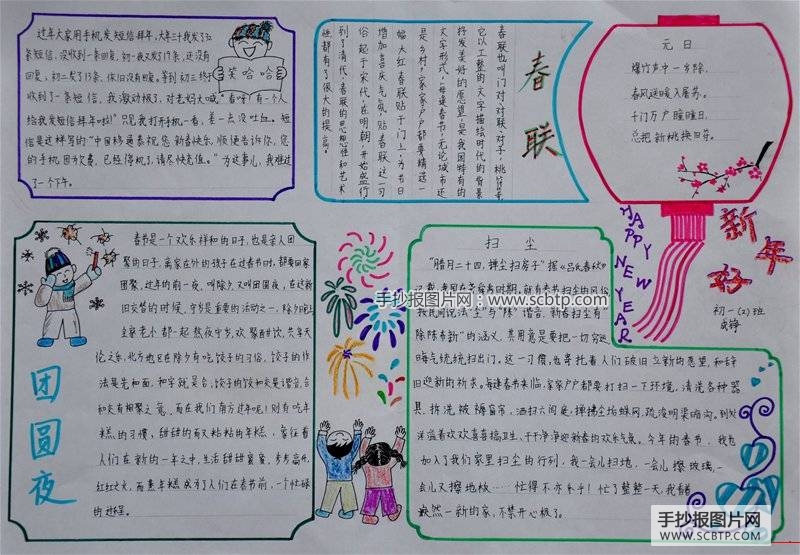 过年大家用手机发短信拜年,大年三十我发了32
条短信,没收到一条回复,初一我又发了19条,还没有
回复,初二发了13条,依旧没有回复。等到初三终于
收到了一条短信,我激动极了,对老妈大喊:"看呀!有一个人
给我发短信拜年啦!"只见我打开手机一看,差一点没吐血。短
信是这样写的"中国移通恭祝您新春快乐,顺便告诉你,您
的手机因为欠费,已经停机了,请尽快充值。"为这事儿,我难过
了一个下午。
笑哈哈
春联
春联也叫门对、对联、对子、桃符等,
它以工整的文字描绘时代的背景
抒发美好的愿望,是我国特有的
文学形式,每逢春节,无论城市还
是乡村,家家户户都要精选一
幅大红春联贴于门上,为节日
增加喜庆气氛,贴春联这一习
俗起于宋代,在明朝开始盛行
到了清代,春联的思想性和艺术
性都有了很大的提高。
元日
爆竹声中一岁除,
春风送暖入屠苏。
千门万户曈曈日,
总把新桃换旧符。
HAPPY NEW YEAR
新年好
初一(2)班
团圆夜
春节是一个欢乐祥和的日子,也是亲人团
聚的日子,离家在外的孩子在过春节时,都要回家
团聚,过年的前一夜,叫除夕又叫团圆夜,在这新
旧交替的时候,守岁是重要的活动之一,除夕晚上
全家老小都一起熬夜守岁,欢聚酣饮,共享天
伦之乐,北方地区在除夕有吃饺子的习俗,饺子的作
法是先和面,和字就是合;饺子的饺和交是谐音,合
和交有相聚之意。而在我们南方过年呢!则有吃年
糕的习惯,甜甜的而又粘粘的年糕,意征着
人们在新的一年之中,生活甜甜蜜蜜,步步高升,
红红火火,而蒸年糕成为了人们在春节前,一个忙碌
的过程。
扫尘
"腊月二十四,掸尘扫房子"据《吕氏春秋》
因"尘"与"陈"谐音,新春扫尘有"
除陈布新"的涵义,其用意是要把一切穷运、
晦气统统扫出门。这一习惯,也寄托着人们破旧立新的愿望,和辞
旧迎新的祈求。每逢春节来临,家家户户都要打扫一下环境,清洗各种器
具,拆洗被褥窗帘,洒扫六闾庭,掸拂尘垢蛛网,疏浚明渠暗沟。到处
洋溢着欢欢喜喜搞卫生,干干净净迎新春的欢乐气氛。今年的春节,我也
加入了我们家里扫尘的行列,我一会儿扫地,一会儿擦玻璃,一
会儿又擦地板……忙得不亦乐乎!忙了整整一天,我看着
焕然一新的家,不禁开心极了。
手抄报图片网:www.scbtp.com
手抄报图片网
WWW.SCBTP.COM